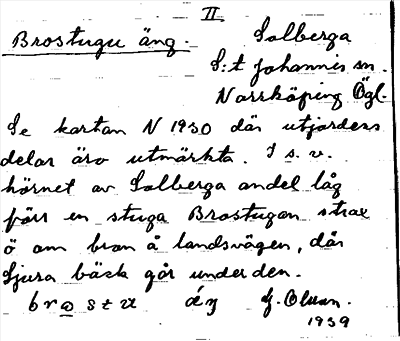 II
Brostugu äng. Solberga
S:t Johannis sn.
Norrköping Ögl.
Se kartan N 1930 där utjordens
delar äro utmärkta. I s. v.
hörnet av Solberga andel låg
förr en stuga Brostugan strax
ö om bron å landsvägen, där
Ljura bäck går under den.
1939